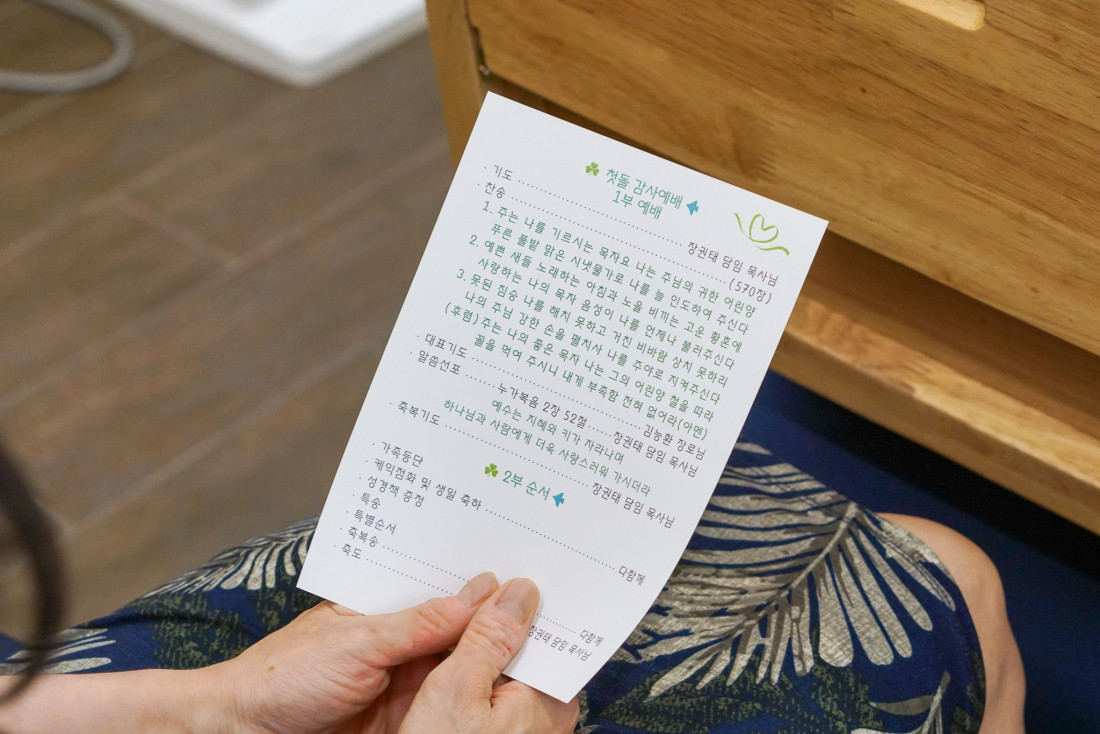 첫돌 감사예배
1부 예배
· 기도 ........ 장권태 담임 목사님
· 찬송 ........ (570장)
1. 주는 나를 기르시는 목자요 나는 주님의 귀한 어린양
푸른 풀밭 맑은 시냇물가로 나를 늘 인도하여 주신다
2. 예쁜 새들 노래하는 아침과 노을 비끼는 고운 황혼에
사랑하는 나의 목자 음성이 나를 언제나 불러주신다
3. 못된 짐승 나를 해치 못하고 거친 비바람 상치 못하리
나의 주님 강한 손을 펼치사 나를 주야로 지켜주신다
(후렴) 주는 나의 좋은 목자 나는 그의 어린양 철을 따라
꼴을 먹여 주시니 내게 부족함 전혀 없어라(아멘)
· 대표기도 ........ 김능환 장로님
· 말씀선포 ........ 누가복음 2장 52절 ........ 장권태 담임 목사님
예수는 지혜와 키가 자라나며
하나님과 사람에게 더욱 사랑스러워 가시더라
· 축복기도 ........ 장권태 담임 목사님
2부 순서
· 가족등단
· 케익점화 및 생일 축하 ........ 다함께
· 성경책 증정
· 특송
· 특별순서
· 축복송 ........ 다함께
· 축도 ........ 장권태 담임 목사님